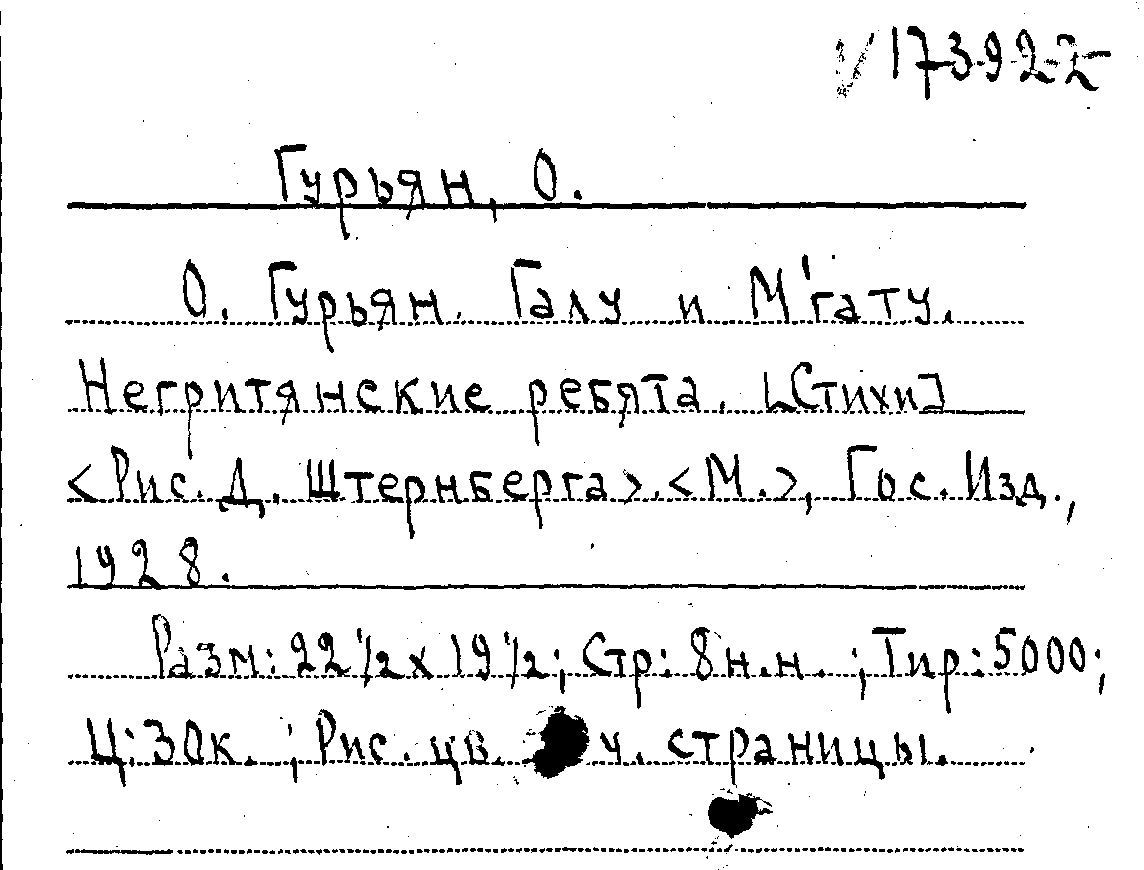 173922
Гурьян, О.
О. Гурьян. Галу и М'гату.
Негритянские ребята. [Стихи]
<Рис. Д. Штернберга>.<М.>, Гос. Изд.,
1928.
Разм: 22 1/2 х 19 1/2; Стр: 8 н.н. ; Тир: 5000;
Ц: 30к. ; Рис. цв. ч. страницы.